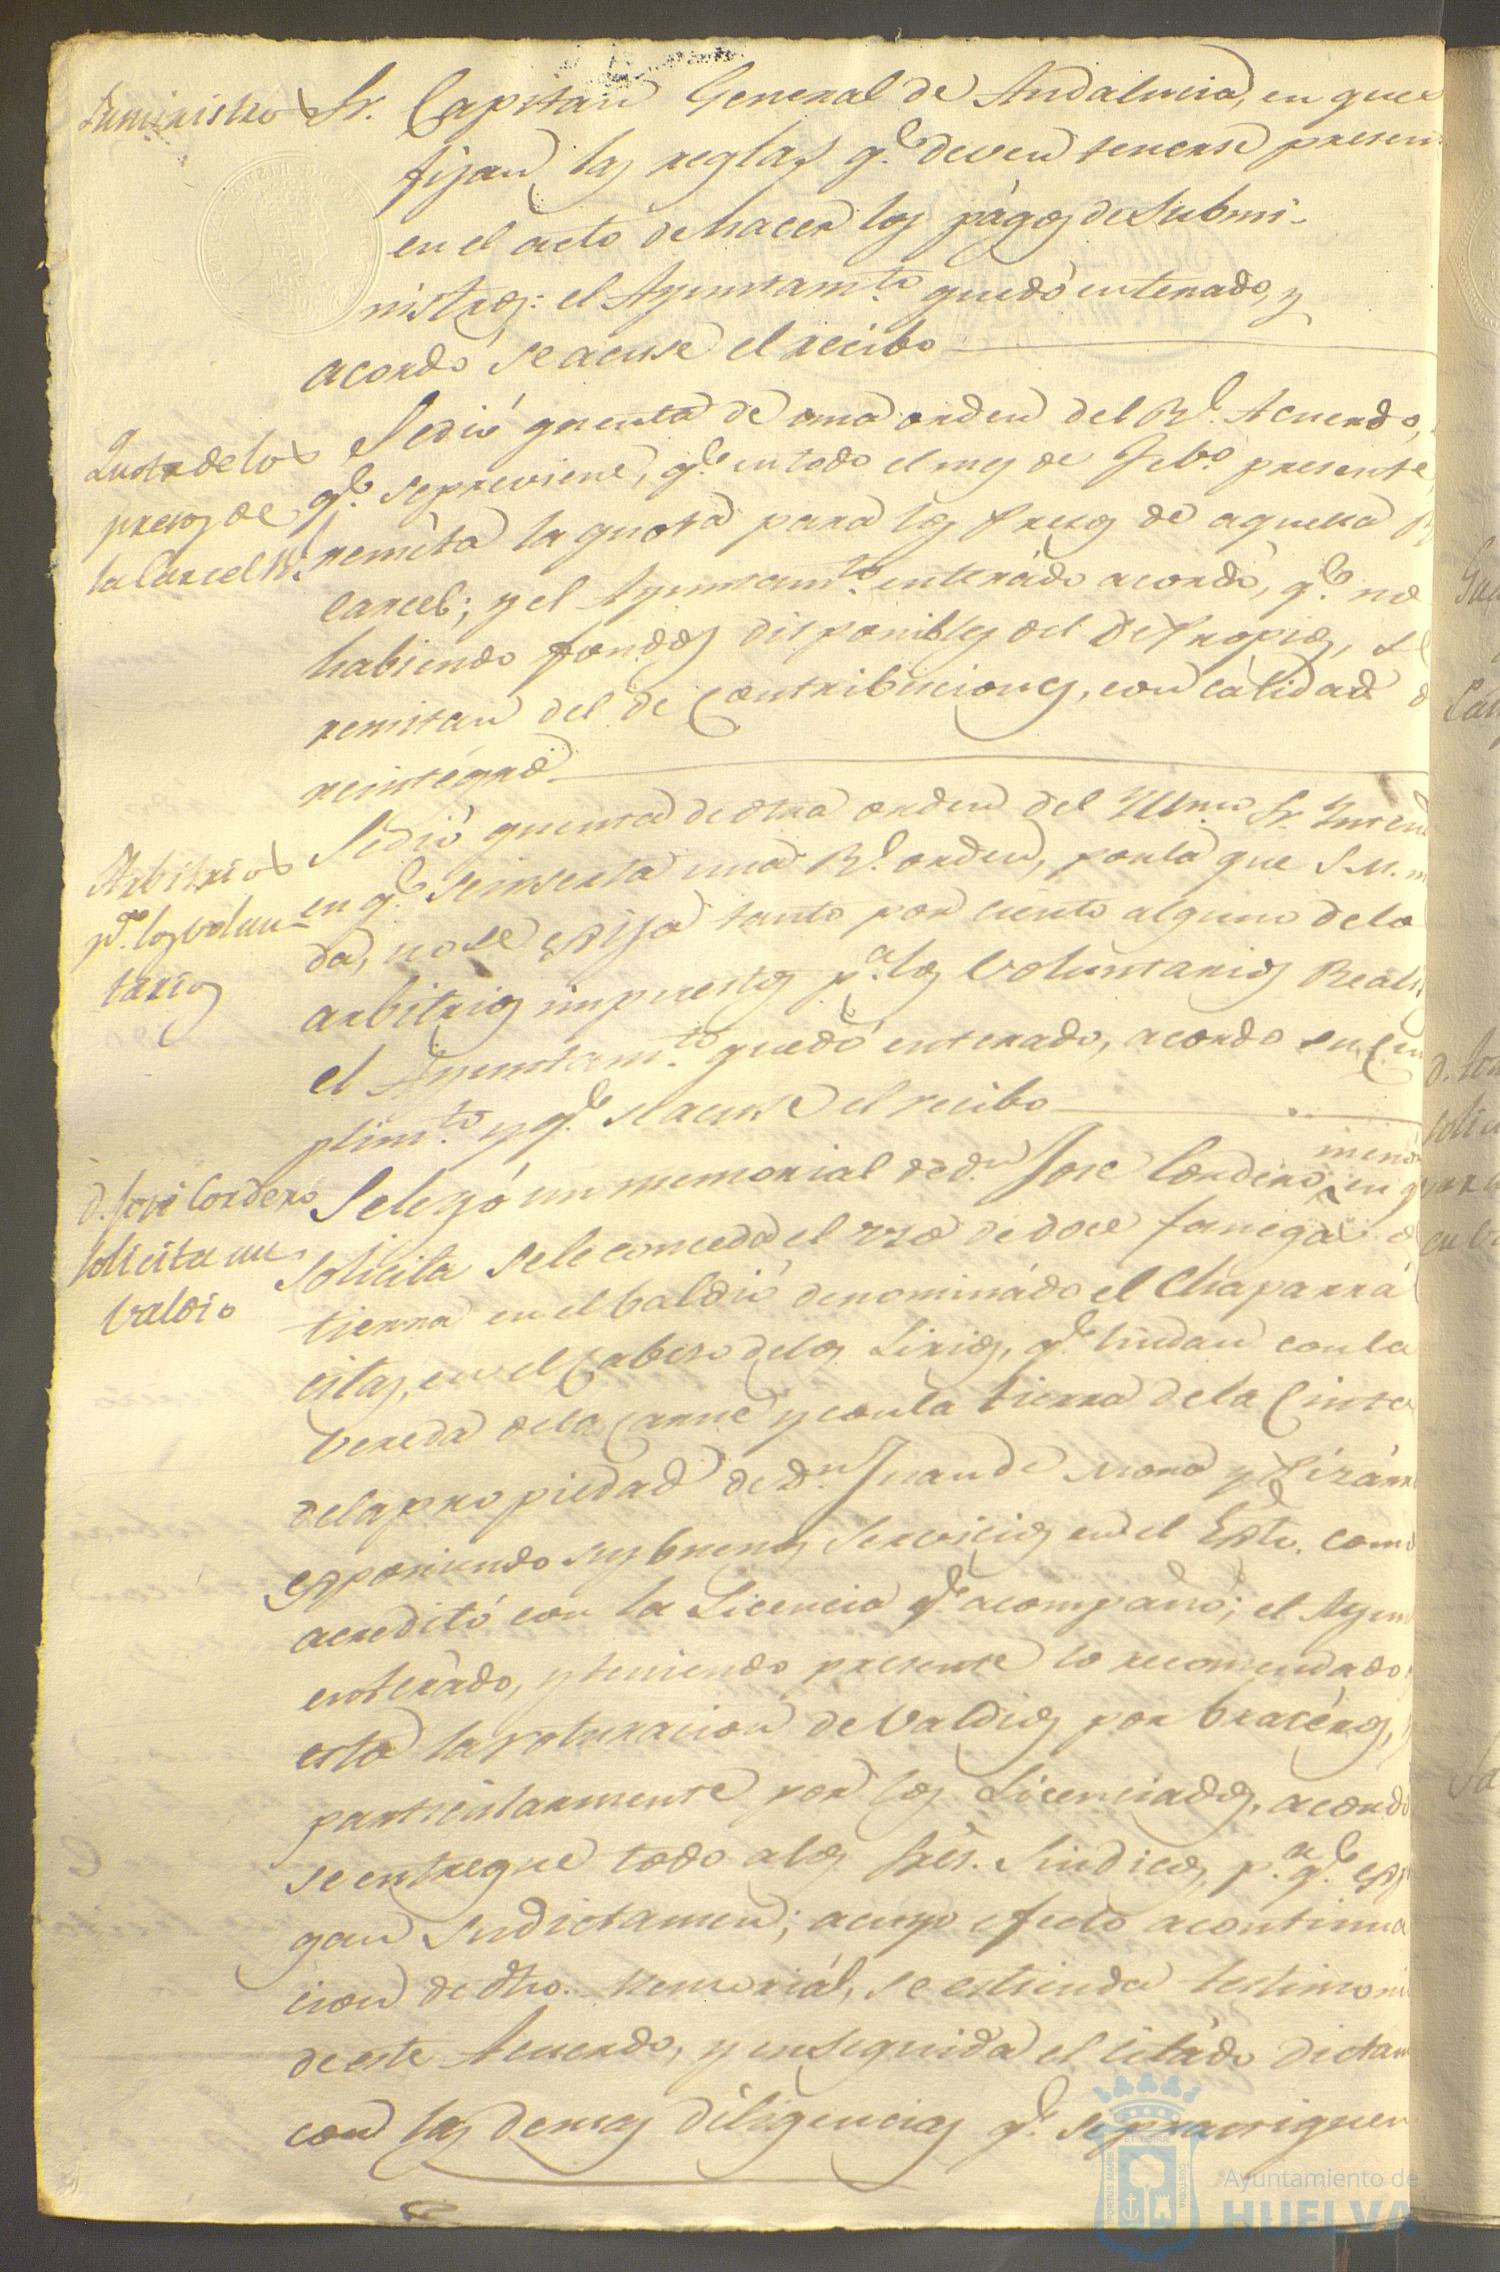 Suministro
Sr. Capitan General de Andalucia, en que
fijan las reglas q.e deven tenerse presen
en el acto de hacer los págos de Submi-
nistros: el Ayuntam.to quedó enterado, y
acordó se acuse el recibo
Quota de los
presos de
la Carcel R.l
Se dió quenta de una orden del R.l Acuerdo,
q.e se previene, q.e en todo el mes de Feb.o presente,
remita la quota para los Presos de aquella R
Carcel; y el Ayuntam.to enterádo acordó, q.e no
habiendo fondos disponibles del de Propios, se
remitan del de Contribuciones, con calidad d
reintégro
Arbitrios
p.a los volun-
tarios
Se dió quenta de otra orden del Yllmo. Sr. Intend
en q.e se inserta una R.l orden, por la que S.M. m
da, no se exija tanto por ciento alguno de lo
arbitrios impuestos p.a los Voluntarios Reali
el Ayuntam.to quedó enterado, acordó su Cum
plim.to y q.e se acuse el recibo
D. José Cordero
solicita un
valdio
menor
Se leyó un memorial de D.n José Cordero, en q
solicita se le conceda el uso de doce fanegas d
tierra en el baldio denominádo el Chaparrá
citas, en el Cabeso de los Lirios, q.e lindan con la
Vereda de la Carne y con la tierra de la Cinta
de la propiedad de D.n Juan de Mora y Pizárr
exponiendo sus buenos Servicios en el Exto. como
acreditó con la Licencia q.e acompañó; el Ayun
enterádo, y teniendo presente lo recomendado
está la roturacion de Valdios por bracéros,
particularmente por los Licenciados, acordó
se entregue todo a los Sres. Sindicos, p.a q.e exp
gan su dictamen; a cuyo efecto a continua
cion de dho. Memoriál, se estienda testimoni
de este Acuerdo, y enseguida el citádo dictam
con las demas diligencias q.e se practiquen
PORTUS MARIS
ET TERRAE
CUSTODIA
Ayuntamiento de
HUELVA